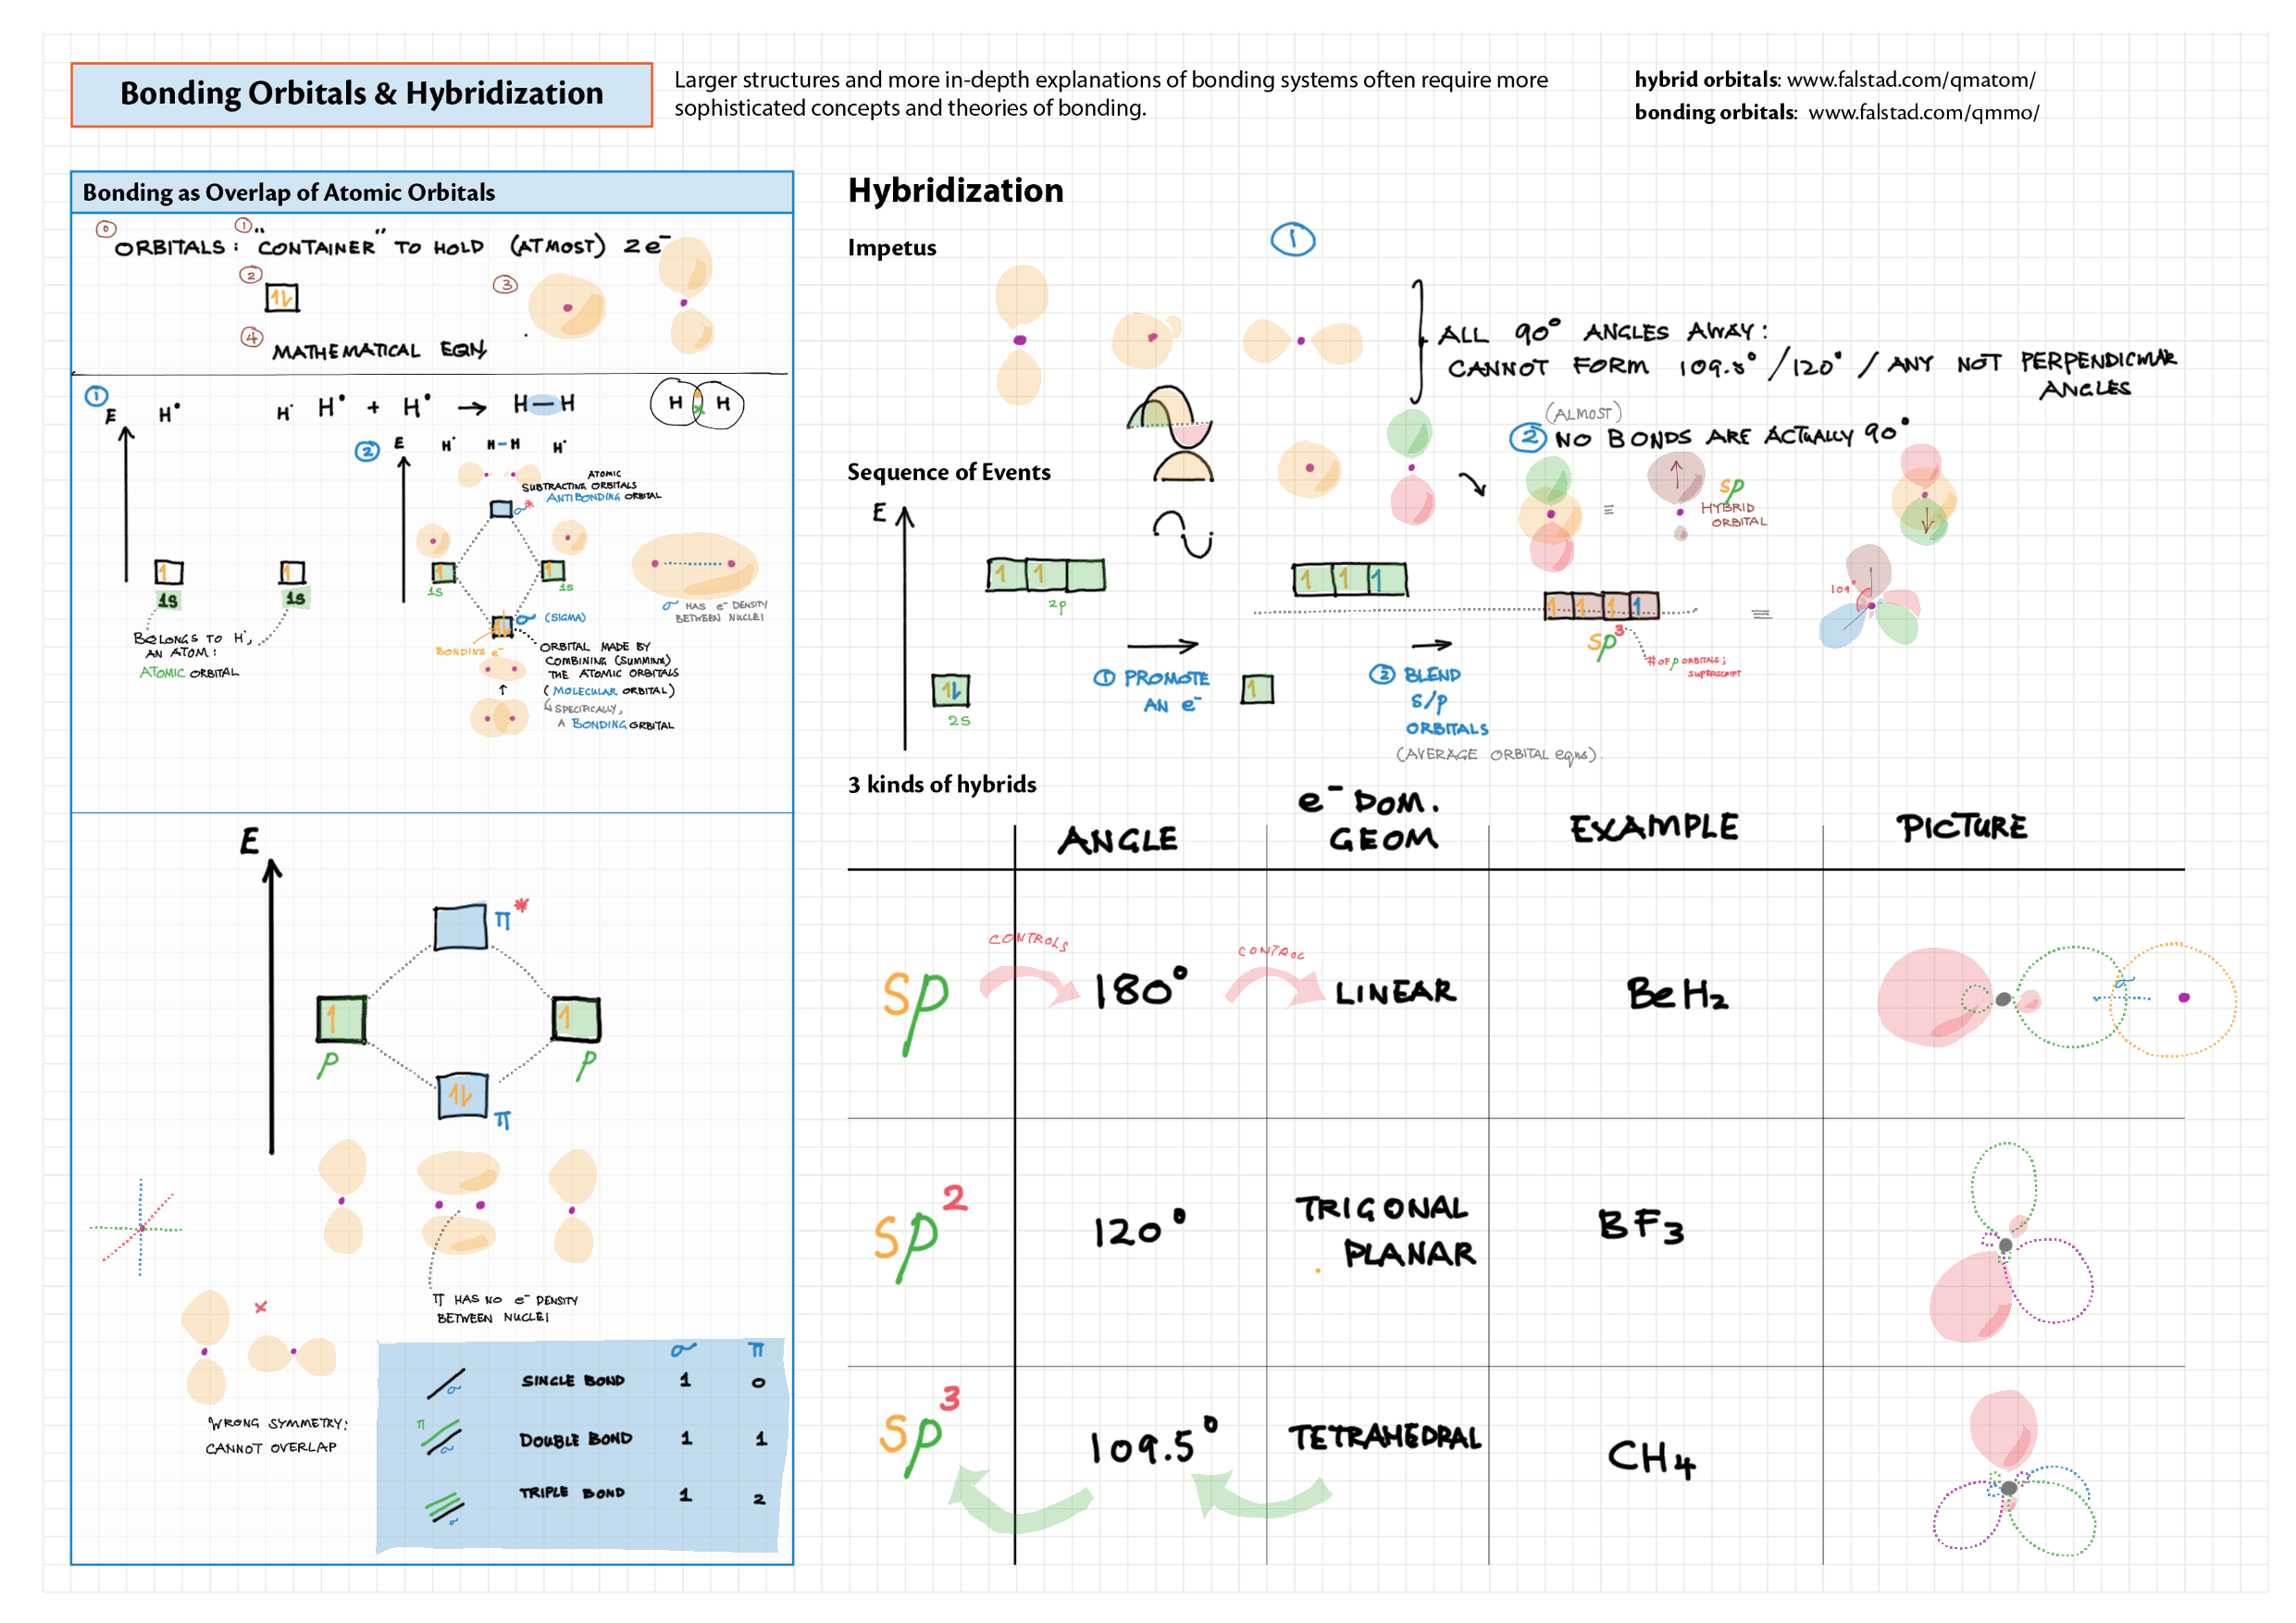 Bonding Orbitals & Hybridization
Larger structures and more in-depth explanations of bonding systems often require more
sophisticated concepts and theories of bonding.
hybrid orbitals: www.falstad.com/qmatom/
bonding orbitals: www.falstad.com/qmmo/
Bonding as Overlap of Atomic Orbitals
0 ORBITALS: 1 "CONTAINER" TO HOLD (ATMOST) 2e⁻
2
3
4 MATHEMATICAL EQN.
1
E H• H• H• + H• → H–H H H
2 E H• H–H H•
ATOMIC
SUBTRACTING ORBITALS
ANTIBONDING ORBITAL
σ*
1s 1s
1s 1s
σ (SIGMA)
σ HAS e⁻ DENSITY
BETWEEN NUCLEI
BELONGS TO H•,
AN ATOM:
ATOMIC ORBITAL
BONDING e⁻
ORBITAL MADE BY
COMBINING (SUMMING)
THE ATOMIC ORBITALS
(MOLECULAR ORBITAL)
SPECIFICALLY,
A BONDING ORBITAL
E
π*
p p
π
π HAS NO e⁻ DENSITY
BETWEEN NUCLEI
WRONG SYMMETRY:
CANNOT OVERLAP
σ π
σ SINGLE BOND 1 0
π σ DOUBLE BOND 1 1
σ TRIPLE BOND 1 2
Hybridization
Impetus
1
ALL 90° ANGLES AWAY:
CANNOT FORM 109.5°/120°/ANY NOT PERPENDICULAR
ANGLES
(ALMOST)
2 NO BONDS ARE ACTUALLY 90°
Sequence of Events
E
=
sp
HYBRID
ORBITAL
2p
2s
1 PROMOTE
AN e⁻
2 BLEND
S/P
ORBITALS
(AVERAGE ORBITAL eqns).
sp³
# OF p ORBITALS;
SUPERSCRIPT
≡
109°
3 kinds of hybrids
ANGLE
e⁻ DOM.
GEOM
EXAMPLE
PICTURE
CONTROLS
CONTROL
sp 180° LINEAR BeH₂
σ
sp² 120° TRIGONAL
PLANAR
BF₃
sp³ 109.5° TETRAHEDRAL CH₄